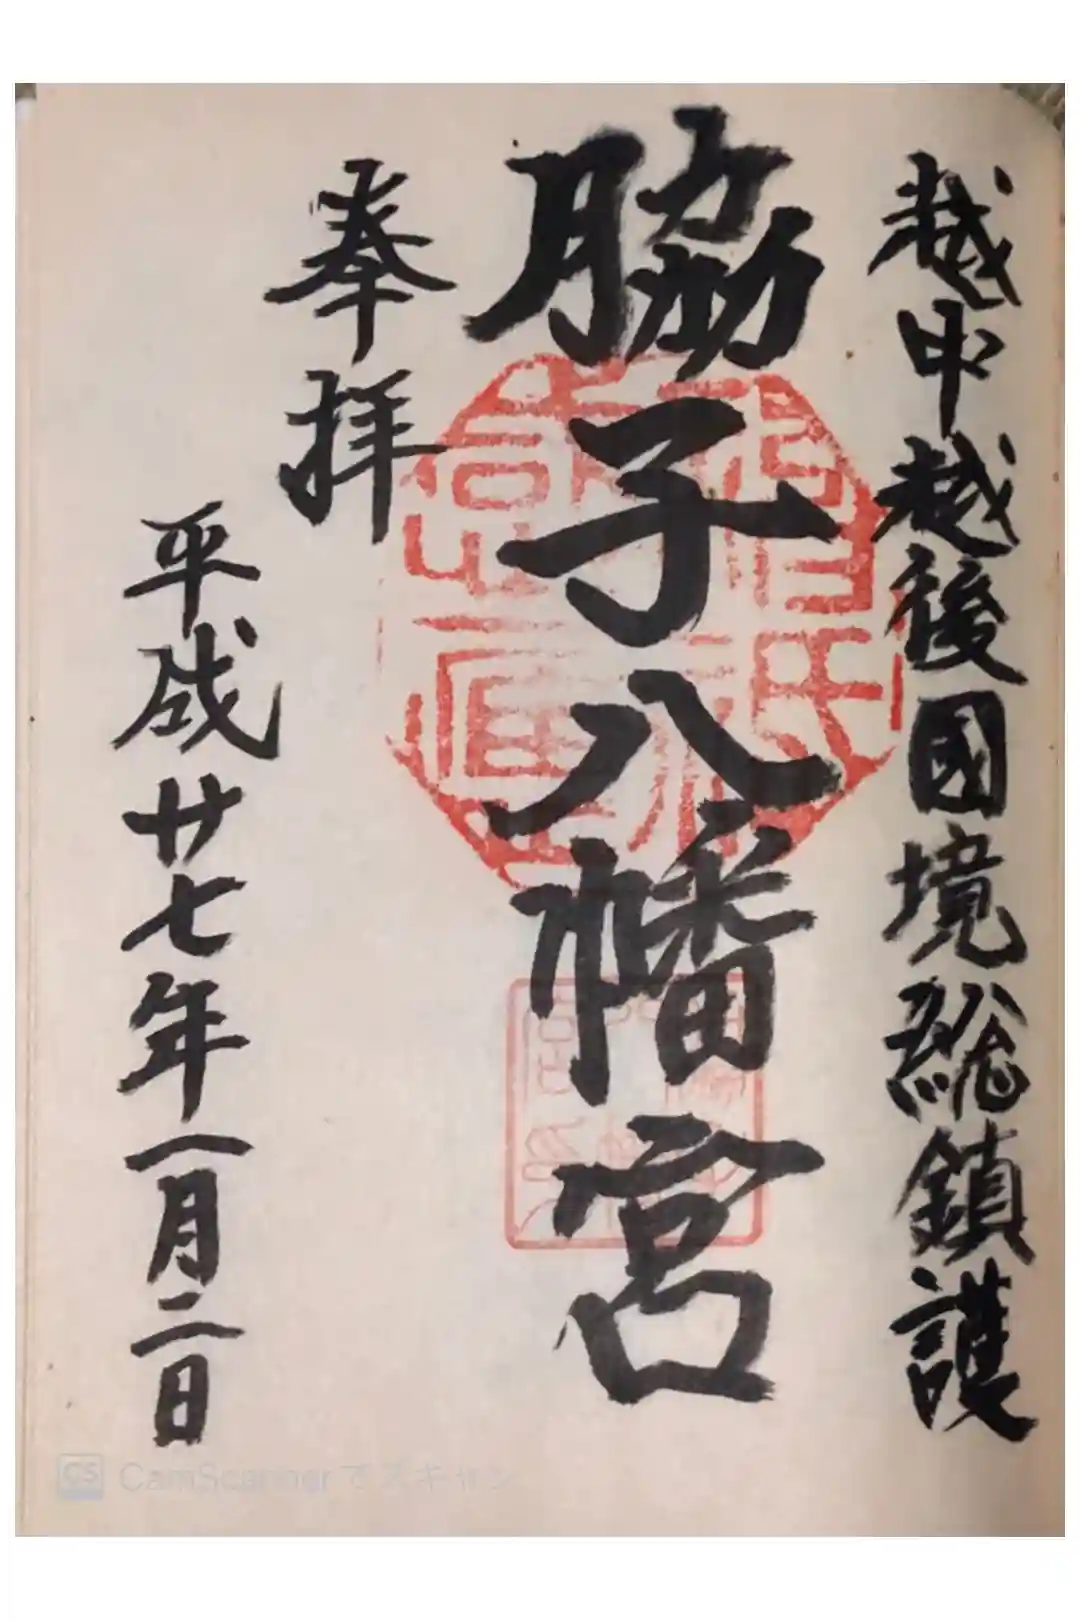 越中越後國境総鎮護
脇子八幡宮
奉拝
平成廿七年一月二日
CS CamScannerでスキャン